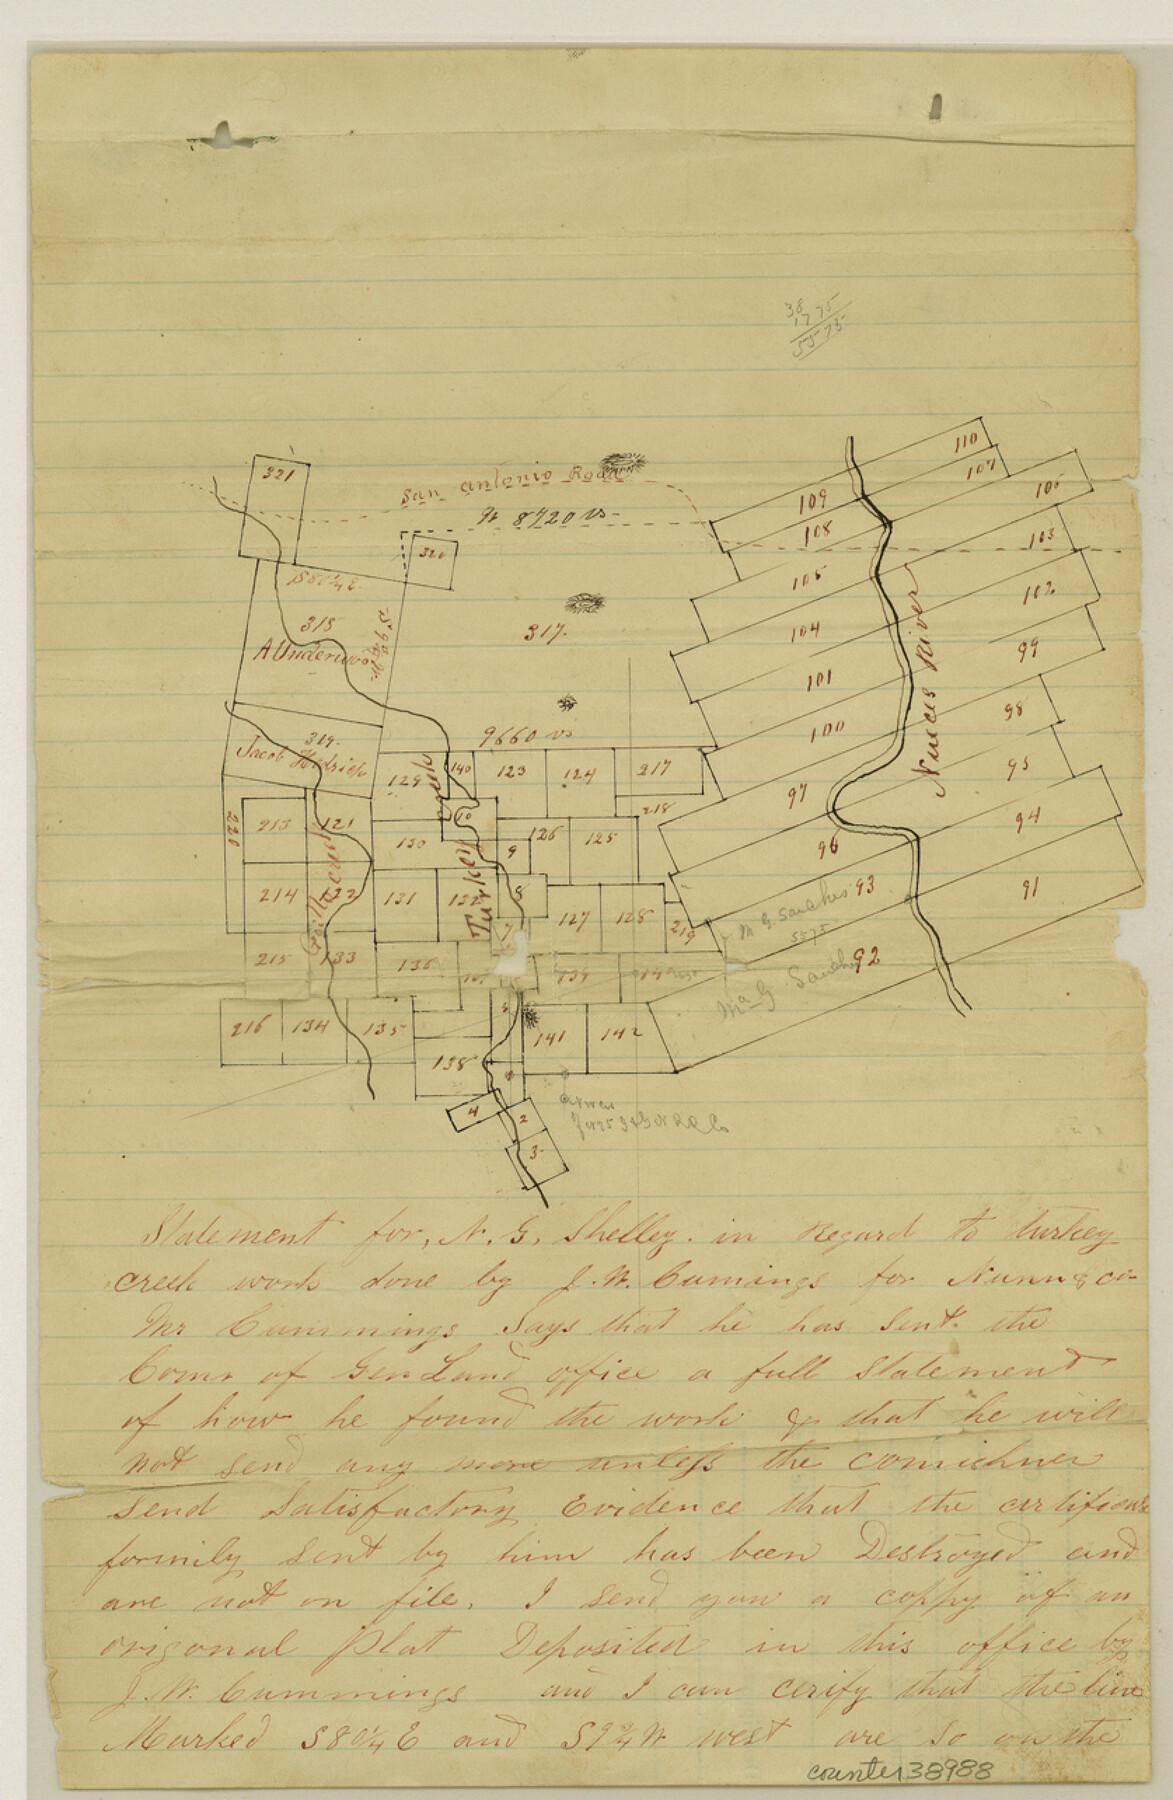 38
1775
5575
110
107
109
108
106
103
105
102
104
99
101
98
100
95
97
94
96
93
91
92
Nueces River
321
San Antonio Road
W 8720 vs-
320
S80¼E
315
A Underwood
S9¾W
317.
9660 vs
319.
Jacob Hedrick
129
140
123
124
217
218
creek
Turkey
220
213
121
130
10
126
125
9
214
122
131
132
8
7
127
128
219
215
133
136
139
M G. Sanches
5575
Ma G Sanches
216
134
135
5
141
142
138
4
2
3
Statement for, N. G. Shelley. in Regard to turkey
creek work done by J. W. Cumings for Nunn & co-
Mr Cummings Says that he has Sent the
Comr of Gen Land office a full Statement
of how he found the work & that he will
not send any more unless the comishner
send Satisfactory Evidence that the certificate
formily sent by him has been Destroyed and
are not on file. I send you a coppy of an
origonal plat Deposited in this office by
J. W. Cummings and I can cerify that the line
Marked S80¼E and S9¾W west are so on the
counter 38988